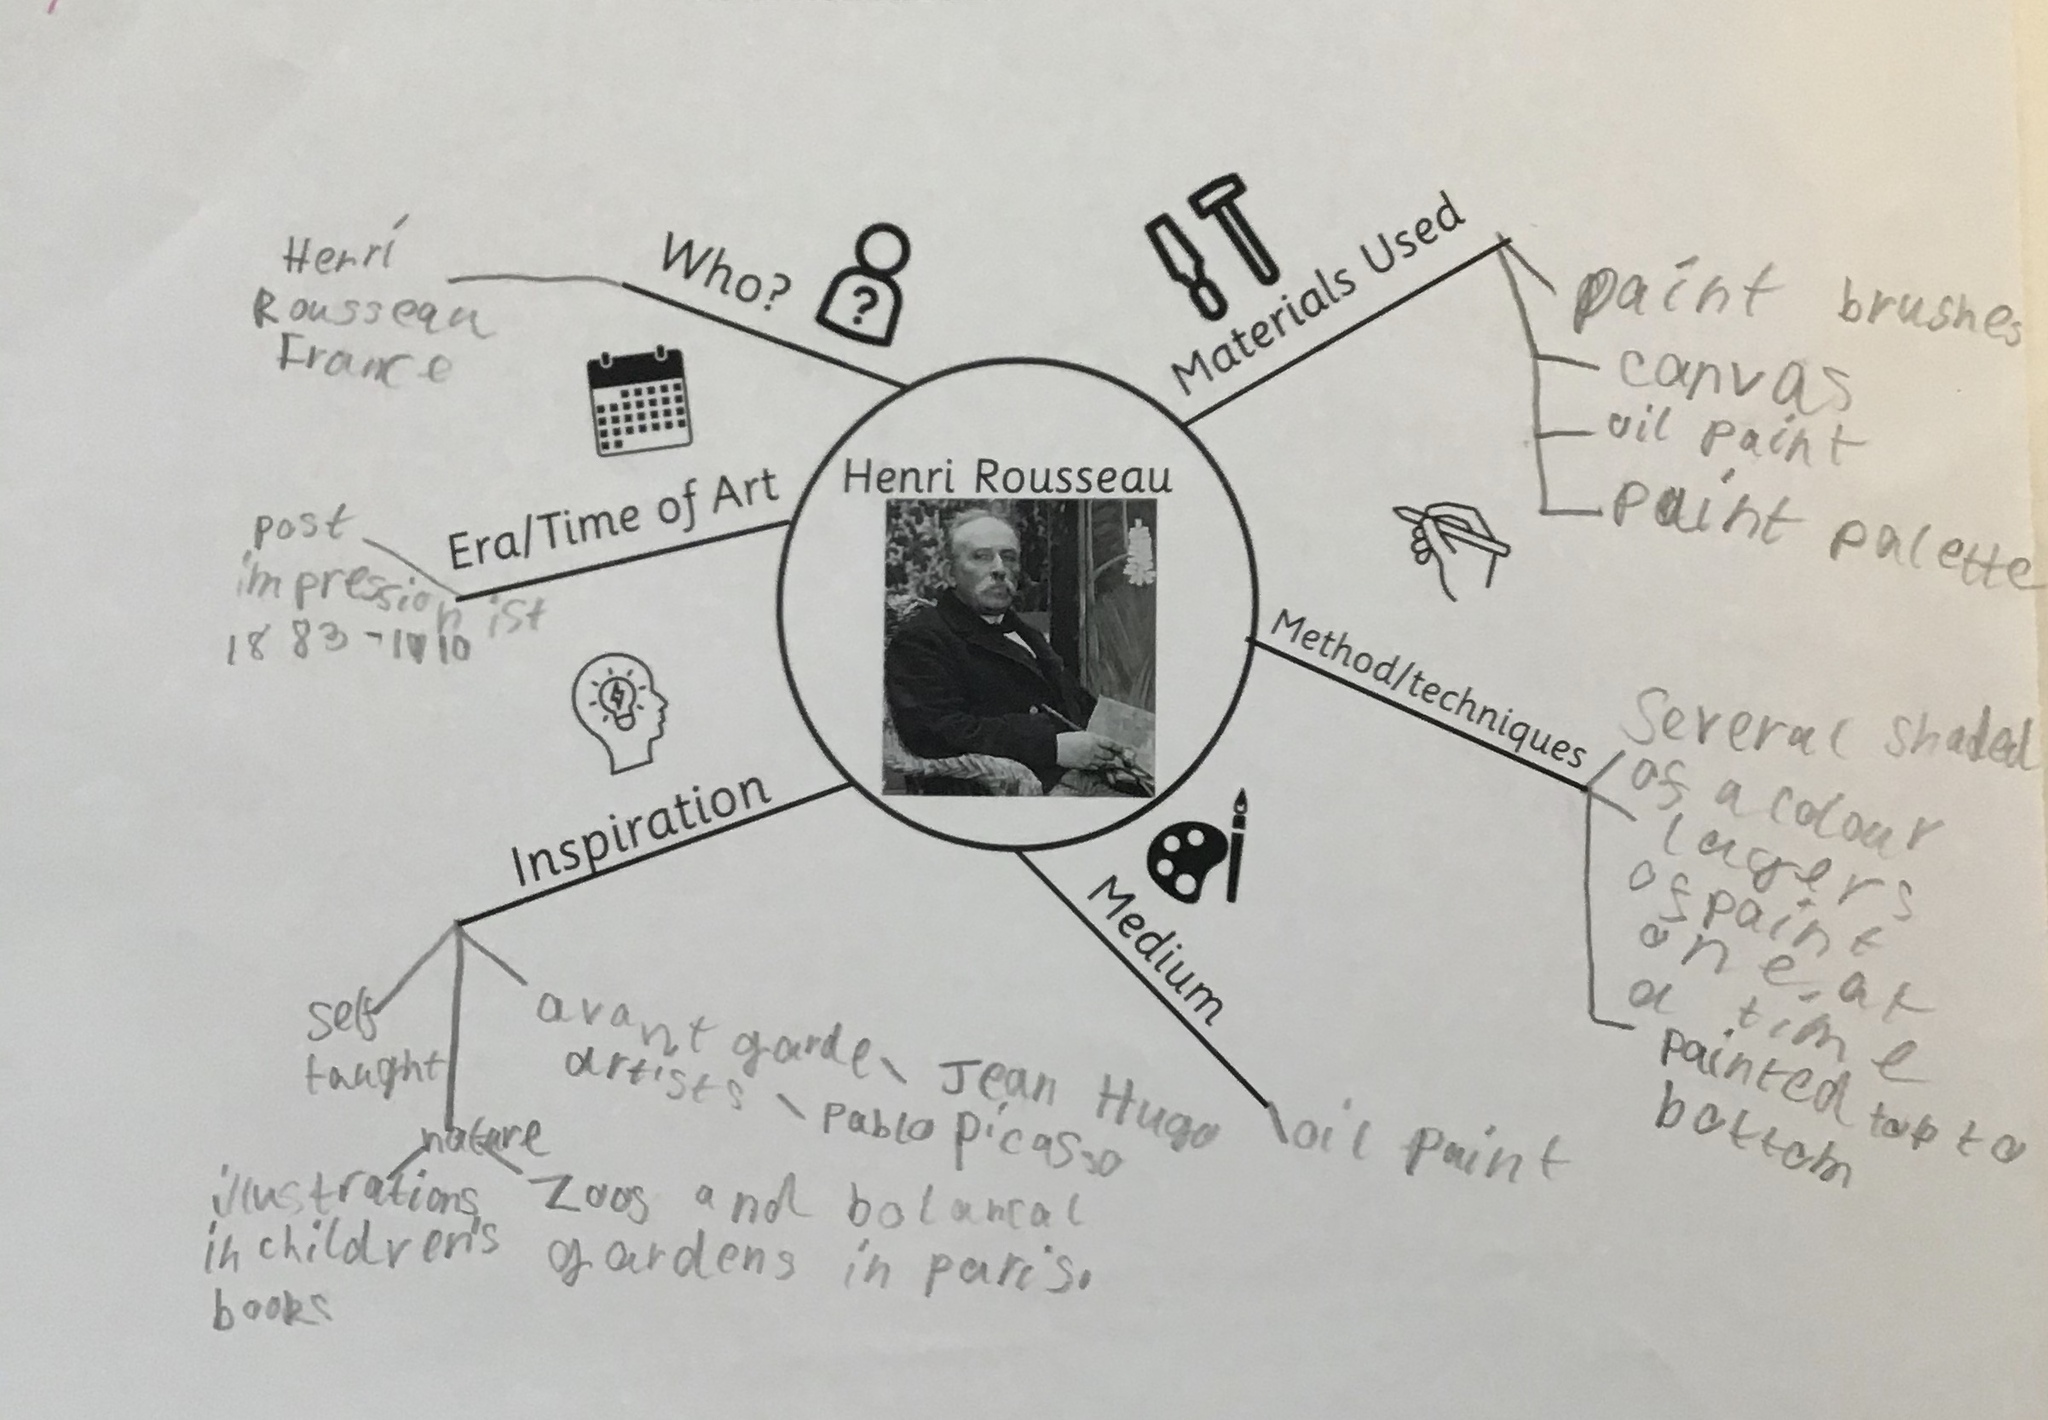 Who?
Henri
Rousseau
France
Era/Time of Art
post
impressionist
1883-1910
Inspiration
self
taught
nature
illustrations
in children's
books
Zoos and botanical
gardens in paris.
avant garde
artists
Jean Hugo
pablo picasso
Henri Rousseau
Materials Used
paint brushes
canvas
oil paint
paint palette
Method/techniques
Several shaded
of a colour
layers
of paint
one at
a time
painted top to
bottom
Medium
oil paint